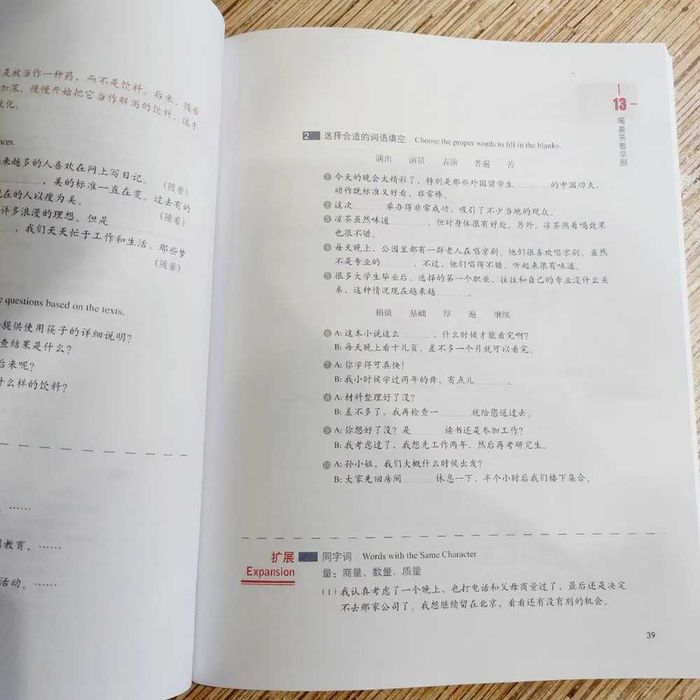 是被当作一种药，而不是饮料。后来，随着
加深，慢慢开始把它当作解渴的饮料，这才
文化。
nces.
来越多的人喜欢在网上写日记。（随着）
，美的标准一直在变。过去有的
现在的人以瘦为美。（随着）
许多浪漫的理想。但是
，我们天天忙于工作和生活，那些梦
（随着）
e questions based on the texts.
提供使用筷子的详细说明？
查结果是什么？
后来呢？
什么样的饮料？
……
国教育，……
活动。……
13
喝着茶看京剧
2 选择合适的词语填空 Choose the proper words to fill in the blanks.
演出 演员 表演 普遍 苦
❶ 今天的晚会太精彩了，特别是那些外国留学生______的中国功夫，
动作既标准又好看，非常棒。
❷ 这次______举办得非常成功，吸引了不少当地的观众。
❸ 凉茶虽然味道______，但对身体很有好处。另外，凉茶热着喝效果
也很不错。
❹ 每天晚上，公园里都有一群老人在唱京剧。他们很喜欢唱京剧，虽然
不是专业的______，不过，他们唱得不错，听起来很有味道。
❺ 很多大学生毕业后，选择的第一个职业，往往和自己的专业没什么关
系，这种情况现在越来越______。
稍微 基础 厚 遍 继续
❻ A: 这本小说这么______，什么时候才能看完啊？
B: 每天晚上看十几页，差不多一个月就可以看完。
❼ A: 你学得可真快！
B: 我小时候学过两年的舞，有点儿______。
❽ A: 材料整理好了没？
B: 差不多了，我再检查一______就给您送过去。
❾ A: 你想好了没？是______读书还是参加工作？
B: 我考虑过了，我想先工作两年，然后再考研究生。
❿ A: 孙小姐，我们大概什么时候出发？
B: 大家先回房间______休息一下，半个小时后我们楼下集合。
扩展 同字词 Words with the Same Character
Expansion
量：商量、数量、质量
（1）我认真考虑了一个晚上，也打电话和父母商量过了，最后还是决定
不去那家公司了。我想继续留在北京，看看还有没有别的机会。
39